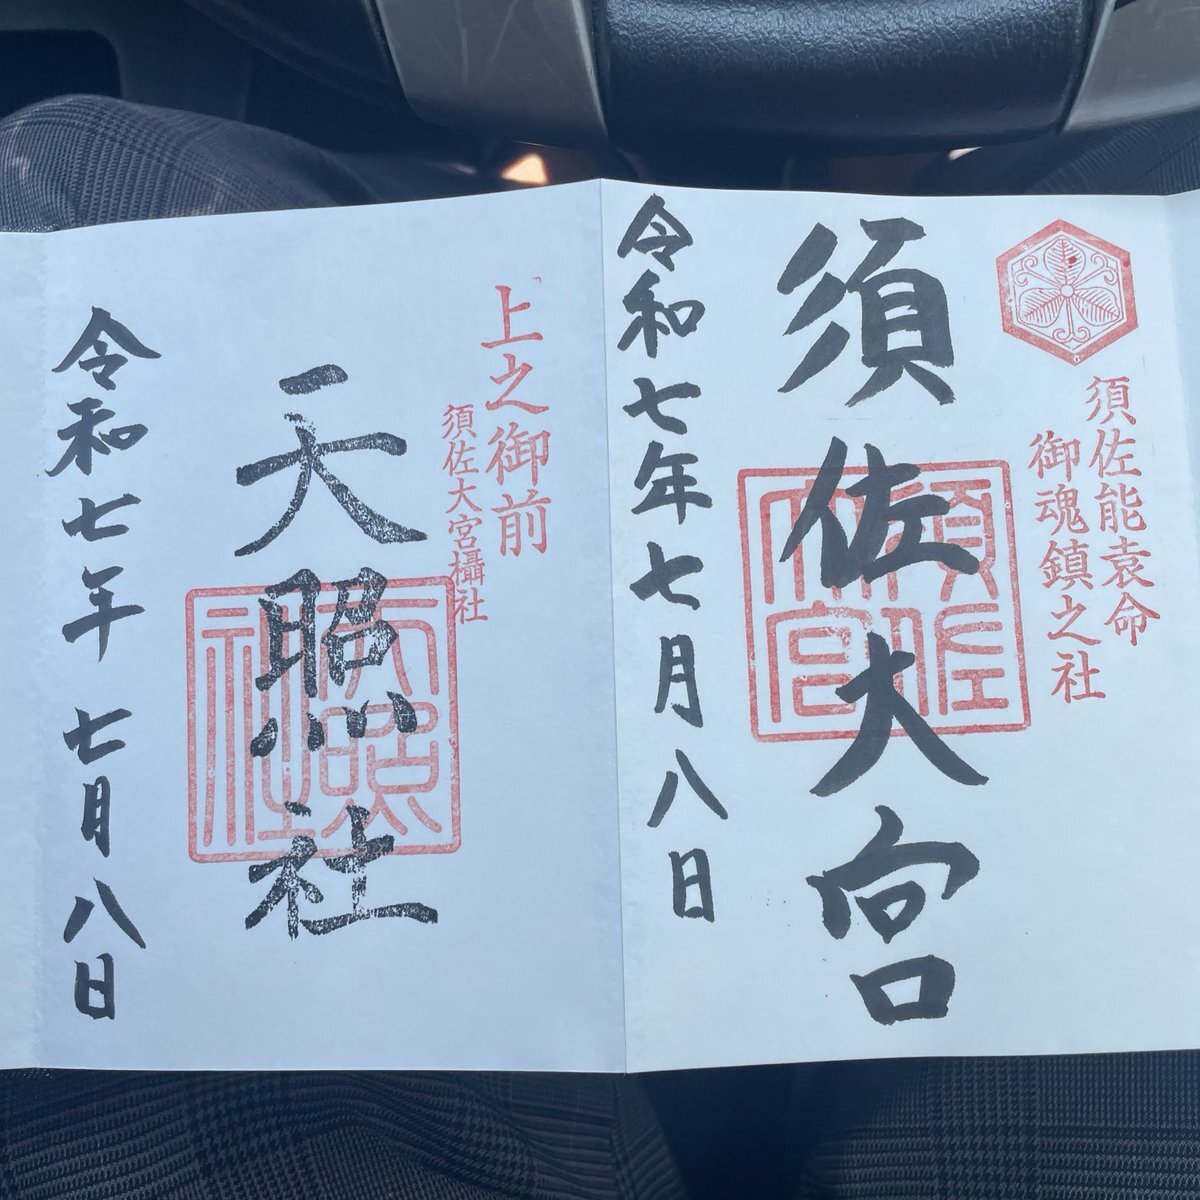 須佐能袁命
御魂鎮之社
須佐大宮
須佐大宮
令和七年七月八日
上之御前
須佐大宮攝社
天照社
天照社
令和七年七月八日